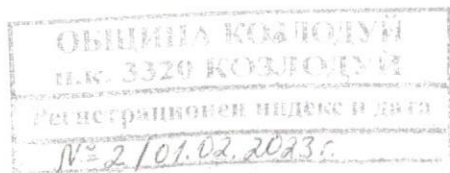 ОБЩИНА КОЗЛОДУЙ
п.к. 3320 КОЗЛОДУЙ
Регистрационен индекс и дата
№ 2/01.02.2023г.